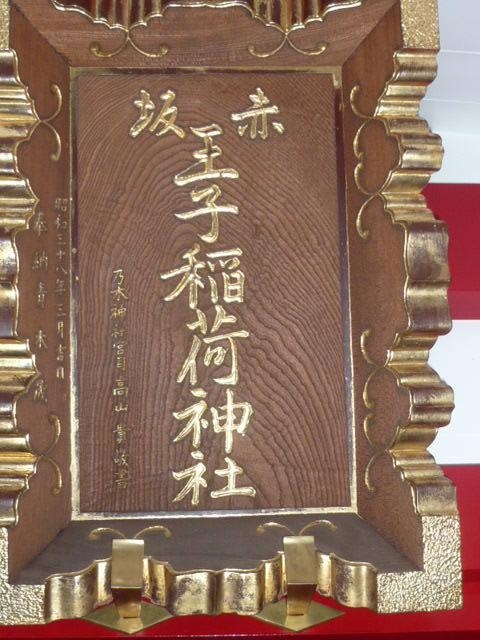 赤坂
王子稲荷神社
乃木神社宮司高山貴書
昭和三十八年三月吉日
奉納青木